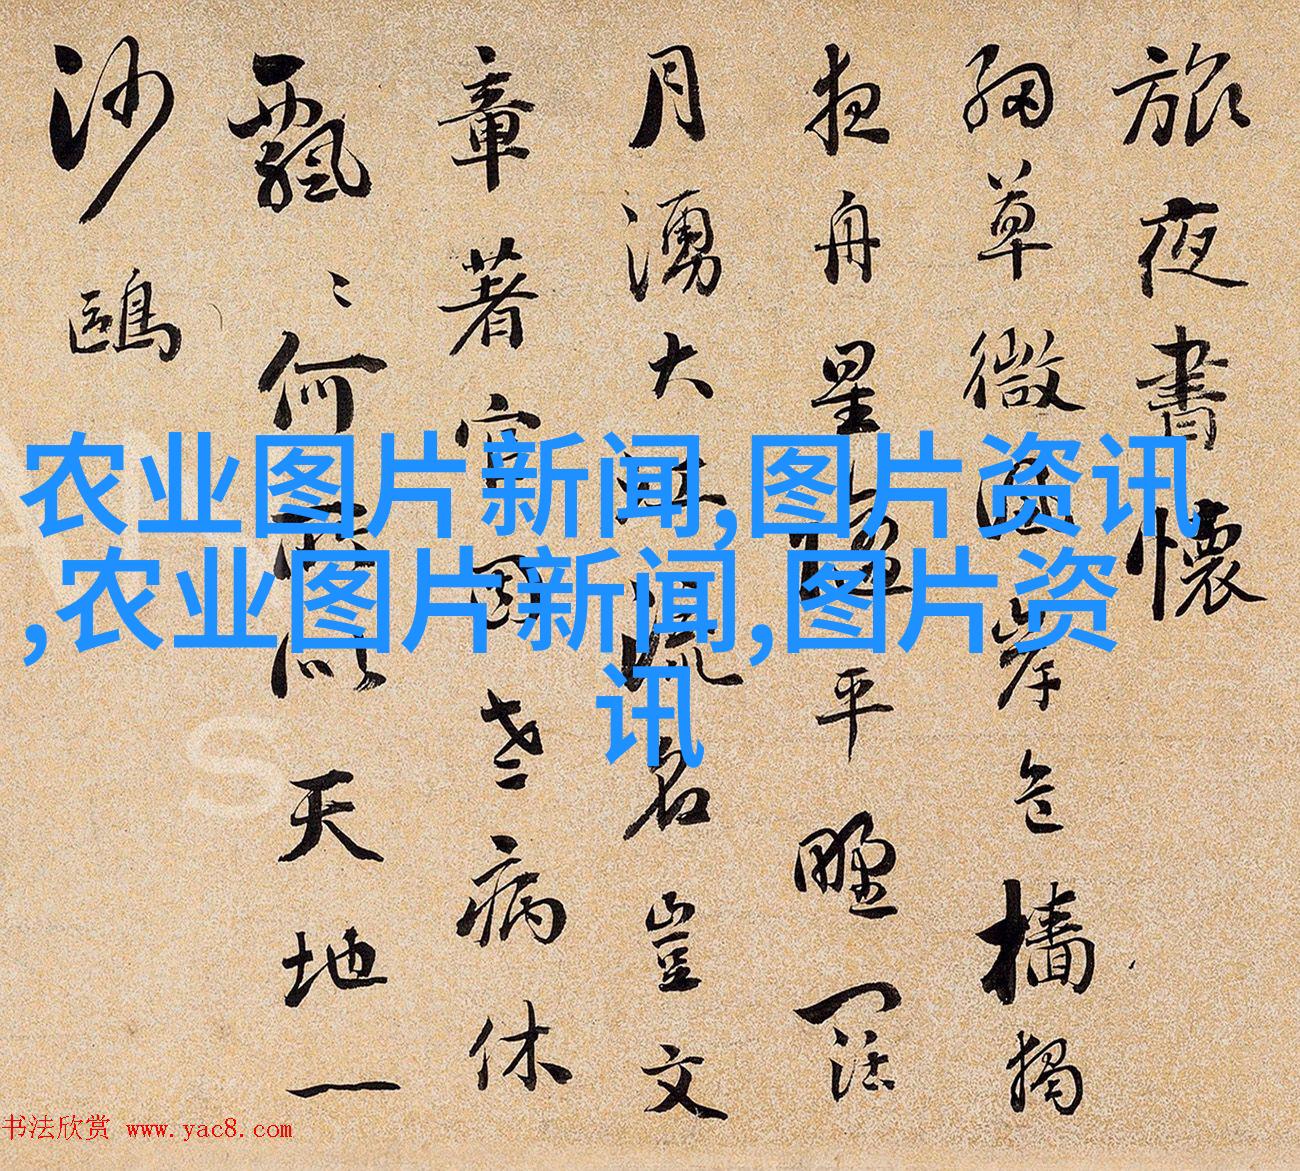 旅夜書懷
細草微風岸危檣獨
夜舟星垂平野闊
月湧大江流名豈文
章著官因老病休
飄〻何所似天地一
沙鷗
农业图片新闻,图片资讯
,农业图片新闻,图片资
讯
书法欣赏 www.yac8.com